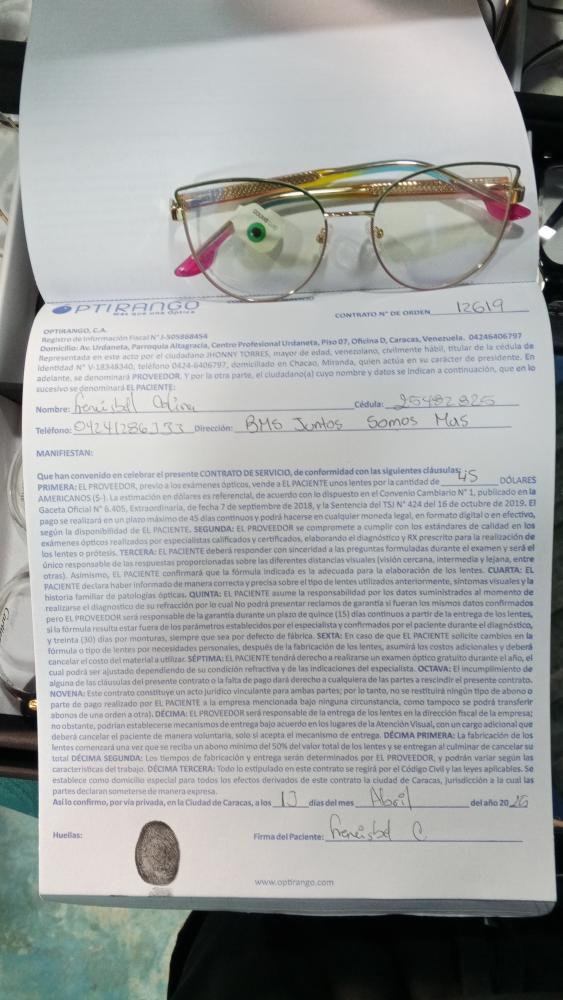 OPTIRANGO
Más que una Óptica
CONTRATO N° DE ORDEN 12619
OPTIRANGO, C.A.
Registro de Información Fiscal N° J-505868454
Domicilio: Av. Urdaneta, Parroquia Altagracia, Centro Profesional Urdaneta, Piso 07, Oficina D, Caracas, Venezuela. 04246406797
Representada en este acto por el ciudadano JHONNY TORRES, mayor de edad, venezolano, civilmente hábil, titular de la cédula de
identidad N° V-18348340, teléfono 0424-6406797, domiciliado en Chacao, Miranda, quien actúa en su carácter de presidente. En
adelante, se denominará PROVEEDOR. Y por la otra parte, el ciudadano(a) cuyo nombre y datos se indican a continuación, que en lo
sucesivo se denominará EL PACIENTE:
Nombre: Cédula: 25492825
Teléfono: 04241286133 Dirección: BMS Juntos Somos Mas
MANIFIESTAN:
Que han convenido en celebrar el presente CONTRATO DE SERVICIO, de conformidad con las siguientes cláusulas:
PRIMERA: EL PROVEEDOR, previo a los exámenes ópticos, vende a EL PACIENTE unos lentes por la cantidad de 45 DÓLARES
AMERICANOS ($-). La estimación en dólares es referencial, de acuerdo con lo dispuesto en el Convenio Cambiario N° 1, publicado en la
Gaceta Oficial N° 6.405, Extraordinaria, de fecha 7 de septiembre de 2018, y la Sentencia del TSJ N° 424 del 16 de octubre de 2019. El
pago se realizará en un plazo máximo de 45 días continuos y podrá hacerse en cualquier moneda legal, en formato digital o en efectivo,
según la disponibilidad de EL PACIENTE. SEGUNDA: EL PROVEEDOR se compromete a cumplir con los estándares de calidad en los
exámenes ópticos realizados por especialistas calificados y certificados, elaborando el diagnóstico y RX prescrito para la realización de
los lentes o prótesis. TERCERA: EL PACIENTE deberá responder con sinceridad a las preguntas formuladas durante el examen y será el
único responsable de las respuestas proporcionadas sobre las diferentes distancias visuales (visión cercana, intermedia y lejana, entre
otras). Asimismo, EL PACIENTE confirmará que la fórmula indicada es la adecuada para la elaboración de los lentes. CUARTA: EL
PACIENTE declara haber informado de manera correcta y precisa sobre el tipo de lentes utilizados anteriormente, síntomas visuales y la
historia familiar de patologías ópticas. QUINTA: EL PACIENTE asume la responsabilidad por los datos suministrados al momento de
realizarse el diagnostico de su refracción por lo cual No podrá presentar reclamos de garantía si fueran los mismos datos confirmados
pero EL PROVEEDOR será responsable de la garantía durante un plazo de quince (15) días continuos a partir de la entrega de los lentes,
si la fórmula resulta estar fuera de los parámetros establecidos por el especialista y confirmados por el paciente durante el diagnóstico,
y treinta (30) días por monturas, siempre que sea por defecto de fábrica. SEXTA: En caso de que EL PACIENTE solicite cambios en la
fórmula o tipo de lentes por necesidades personales, después de la fabricación de los lentes, asumirá los costos adicionales y deberá
cancelar el costo del material a utilizar. SÉPTIMA: EL PACIENTE tendrá derecho a realizarse un examen óptico gratuito durante el año, el
cual podrá ser ajustado dependiendo de su condición refractiva y de las indicaciones del especialista. OCTAVA: El incumplimiento de
alguna de las cláusulas del presente contrato o la falta de pago dará derecho a cualquiera de las partes a rescindir el presente contrato.
NOVENA: Este contrato constituye un acto jurídico vinculante para ambas partes; por lo tanto, no se restituirá ningún tipo de abono o
parte de pago realizado por EL PACIENTE a la empresa mencionada bajo ninguna circunstancia, como tampoco se podrá transferir
abonos de una orden a otra). DÉCIMA: EL PROVEEDOR será responsable de la entrega de los lentes en la dirección fiscal de la empresa;
no obstante, podrían establecerse mecanismos de entrega bajo acuerdo en los lugares de la Atención Visual, con un cargo adicional que
deberá cancelar el paciente de manera voluntaria, solo si acepta el mecanismo de entrega. DÉCIMA PRIMERA: La fabricación de los
lentes comenzará una vez que se reciba un abono mínimo del 50% del valor total de los lentes y se entregan al culminar de cancelar su
total DÉCIMA SEGUNDA: Los tiempos de fabricación y entrega serán determinados por EL PROVEEDOR, y podrán variar según las
características del trabajo. DÉCIMA TERCERA: Todo lo estipulado en este contrato se regirá por el Código Civil y las leyes aplicables. Se
establece como domicilio especial para todos los efectos derivados de este contrato la ciudad de Caracas, jurisdicción a la cual las
partes declaran someterse de manera expresa.
Así lo confirmo, por vía privada, en la Ciudad de Caracas, a los 13 días del mes Abril del año 20
Huellas: Firma del Paciente: C
www.optirango.com